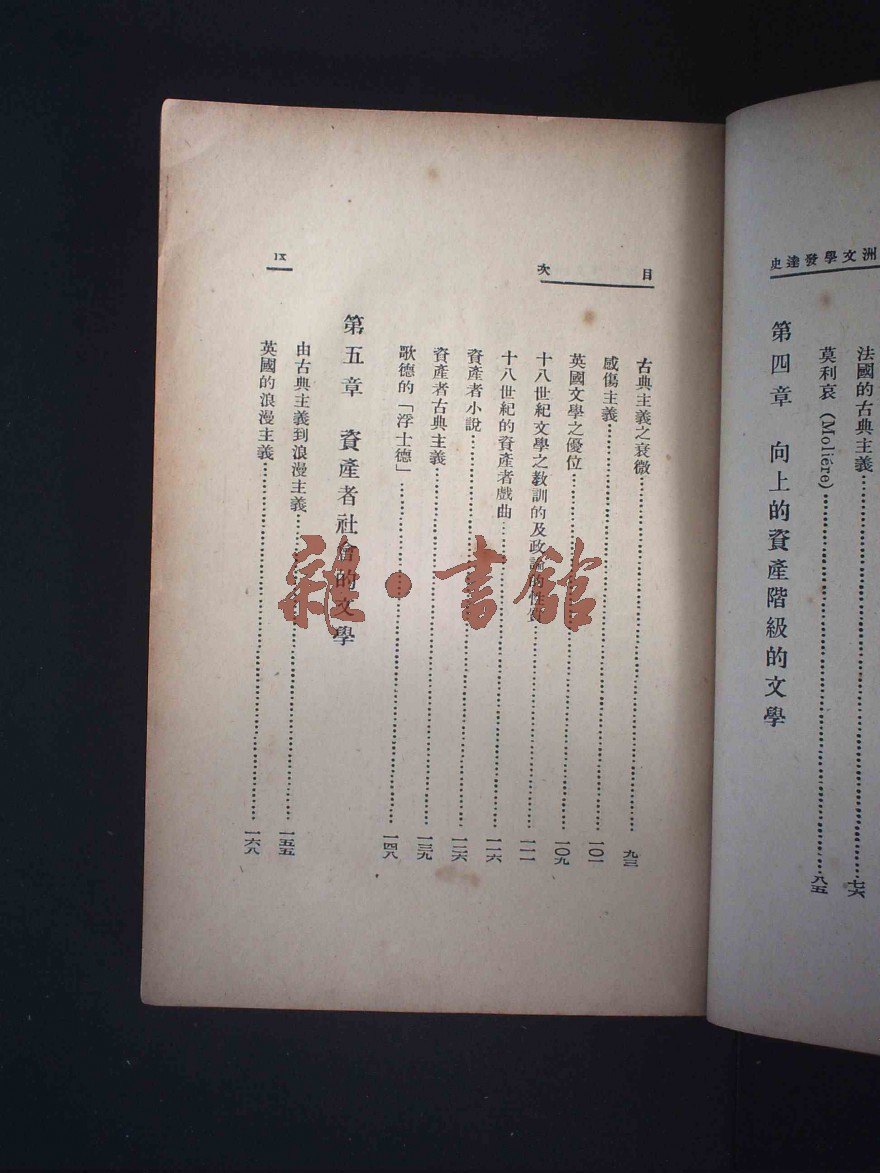 洲文學發達史
法國的古典主義……七六
莫利哀 (Moliére)……八五
第四章 向上的資產階級的文學
目次
古典主義之衰微……九三
感傷主義……一〇一
英國文學之優位……一〇九
十八世紀文學之教訓的及政論的性質……一一一
十八世紀的資產者戲曲……一一六
資產者小說……一二六
資產者古典主義……一三九
歌德的「浮士德」……一四八
第五章 資產者社會的文學
由古典主義到浪漫主義……一五五
英國的浪漫主義……一六八
IX
雜·書館